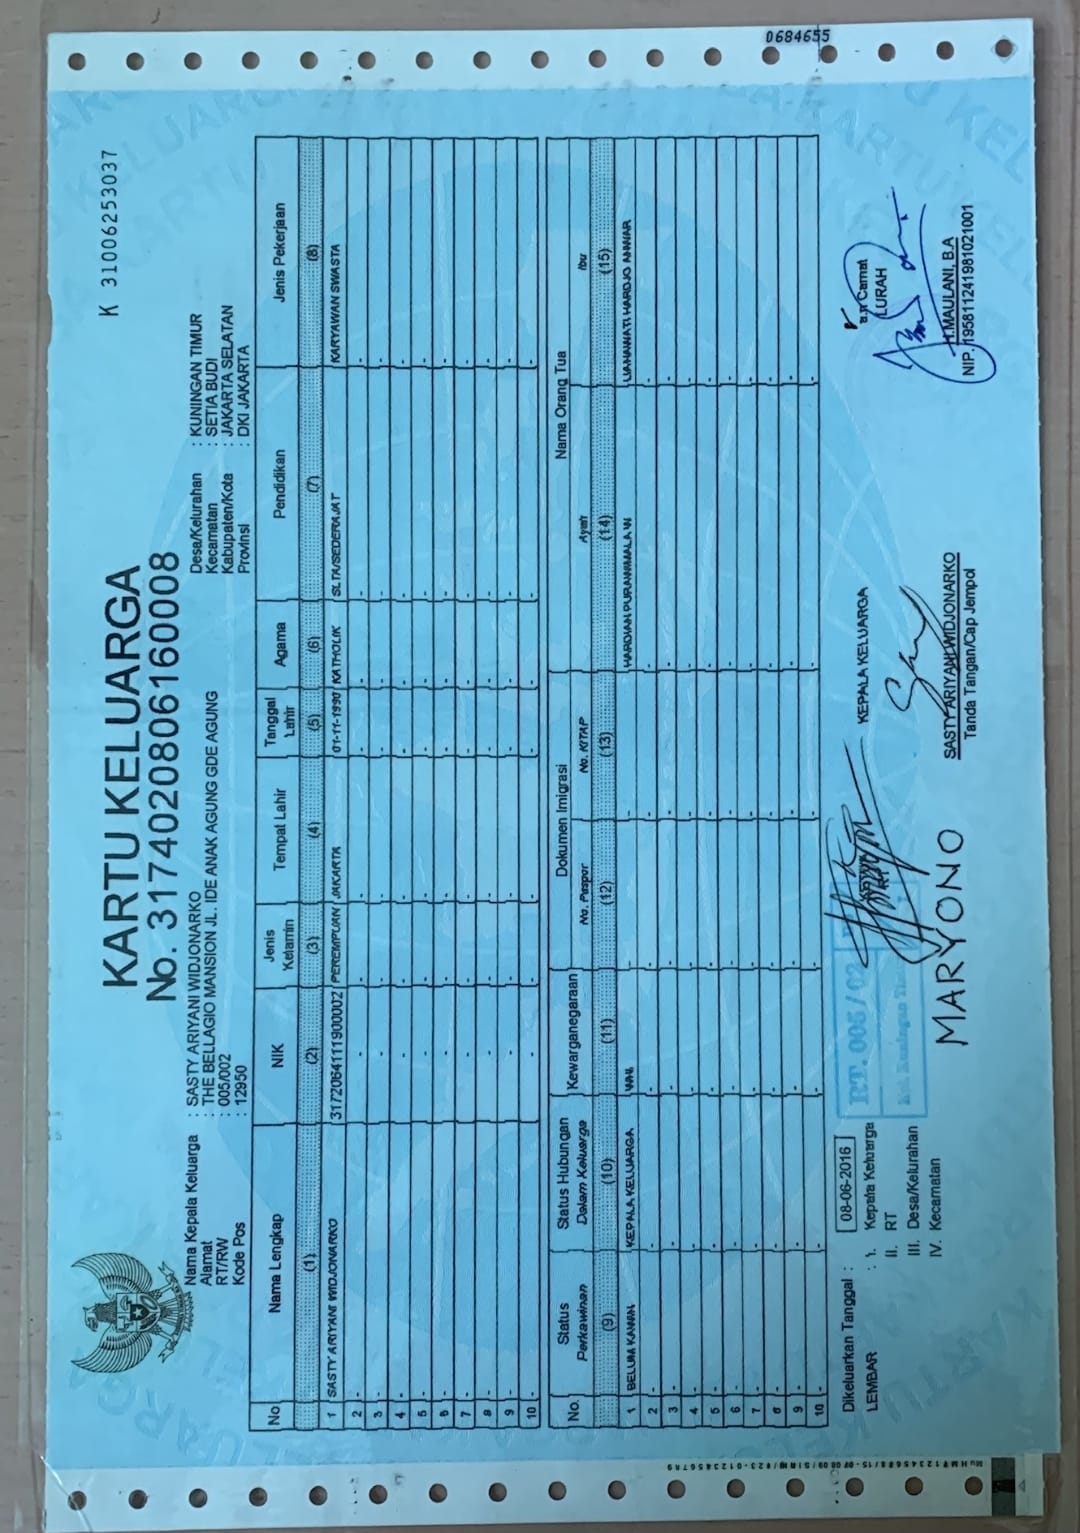 0684655
K 31006253037
KARTU KELUARGA
No. 3174020806160008
Nama Kepala Keluarga : SASTY ARIYANI WIDJONARKO
Alamat : THE BELLAGIO MANSION JL. IDE ANAK AGUNG GDE AGUNG
RT/RW : 005/002
Kode Pos : 12950
Desa/Kelurahan : KUNINGAN TIMUR
Kecamatan : SETIA BUDI
Kabupaten/Kota : JAKARTA SELATAN
Provinsi : DKI JAKARTA
No Nama Lengkap NIK Jenis Kelamin Tempat Lahir Tanggal Lahir Agama Pendidikan Jenis Pekerjaan
(1) (2) (3) (4) (5) (6) (7) (8)
1 SASTY ARIYANI WIDJONARKO 3172064111900002 PEREMPUAN JAKARTA 01-11-1990 KATHOLIK SLTA/SEDERAJAT KARYAWAN SWASTA
2 - - - - - - - -
3 - - - - - - - -
4 - - - - - - - -
5 - - - - - - - -
6 - - - - - - - -
7 - - - - - - - -
8 - - - - - - - -
9 - - - - - - - -
10 - - - - - - - -
No. Status Perkawinan Status Hubungan Dalam Keluarga Kewarganegaraan Dokumen Imigrasi Nama Orang Tua
No. Paspor No. KITAP Ayah Ibu
(9) (10) (11) (12) (13) (14) (15)
1 BELUM KAWIN KEPALA KELUARGA WNI - - HARDIAN PURAWIMALA W LIANAWATI HARDJO ANWAR
2 - - - - - - -
3 - - - - - - -
4 - - - - - - -
5 - - - - - - -
6 - - - - - - -
7 - - - - - - -
8 - - - - - - -
9 - - - - - - -
10 - - - - - - -
Dikeluarkan Tanggal : 08-06-2016
LEMBAR : I. Kepala Keluarga
II. RT
III. Desa/Kelurahan
IV. Kecamatan
RT. 005 / 02
Kel. Kuningan
MARYONO
KEPALA KELUARGA
SASTY ARIYANI WIDJONARKO
Tanda Tangan/Cap Jempol
a.n Camat
LURAH
H.MAULANI, B.A
NIP. 195811241981021001